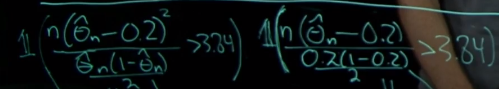 𝟙(n(θ̂ₙ−0.2)²/θ̂ₙ(1−θ̂ₙ) >3.84) 𝟙(n(θ̂ₙ−0.2)/0.2(1−0.2) >3.84)
2